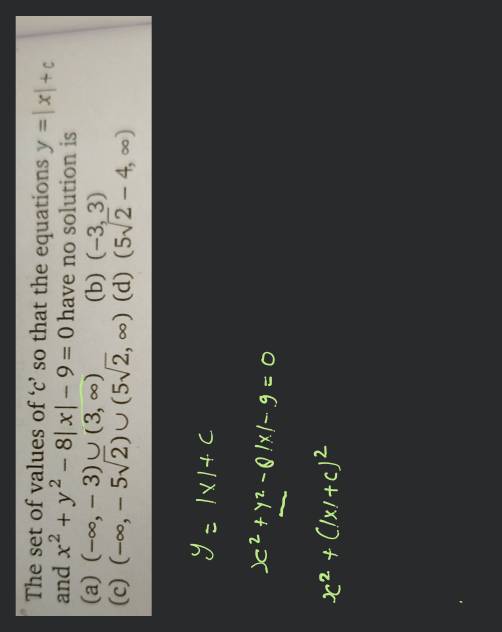 The set of values of 'c' so that the equations y = |x| + c
and x² + y² − 8|x| − 9 = 0 have no solution is
(a) (−∞, − 3) ∪ (3, ∞) (b) (−3, 3)
(c) (−∞, − 5√2) ∪ (5√2, ∞) (d) (5√2 − 4, ∞)
y = |x| + c
x² + y² - 8|x| - 9 = 0
x² + (|x| + c)²